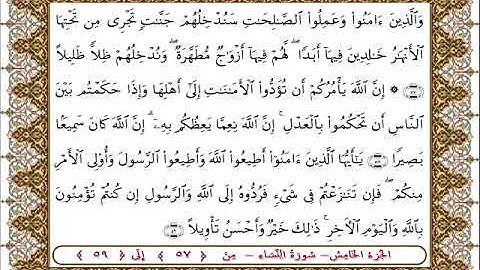 وَٱلَّذِينَ ءَامَنُوا۟ وَعَمِلُوا۟ ٱلصَّـٰلِحَـٰتِ سَنُدْخِلُهُمْ جَنَّـٰتٍ تَجْرِى مِن تَحْتِهَا
ٱلْأَنْهَـٰرُ خَـٰلِدِينَ فِيهَآ أَبَدًا ۖ لَّهُمْ فِيهَآ أَزْوَٰجٌ مُّطَهَّرَةٌ ۖ وَنُدْخِلُهُمْ ظِلًّا ظَلِيلًا
﴿٥٧﴾ ۞ إِنَّ ٱللَّهَ يَأْمُرُكُمْ أَن تُؤَدُّوا۟ ٱلْأَمَـٰنَـٰتِ إِلَىٰٓ أَهْلِهَا وَإِذَا حَكَمْتُم بَيْنَ
ٱلنَّاسِ أَن تَحْكُمُوا۟ بِٱلْعَدْلِ ۚ إِنَّ ٱللَّهَ نِعِمَّا يَعِظُكُم بِهِۦٓ ۗ إِنَّ ٱللَّهَ كَانَ سَمِيعًۢا
بَصِيرًا ﴿٥٨﴾ يَـٰٓأَيُّهَا ٱلَّذِينَ ءَامَنُوٓا۟ أَطِيعُوا۟ ٱللَّهَ وَأَطِيعُوا۟ ٱلرَّسُولَ وَأُو۟لِى ٱلْأَمْرِ
مِنكُمْ ۖ فَإِن تَنَـٰزَعْتُمْ فِى شَىْءٍ فَرُدُّوهُ إِلَى ٱللَّهِ وَٱلرَّسُولِ إِن كُنتُمْ تُؤْمِنُونَ
بِٱللَّهِ وَٱلْيَوْمِ ٱلْـَٔاخِرِ ۚ ذَٰلِكَ خَيْرٌ وَأَحْسَنُ تَأْوِيلًا ﴿٥٩﴾
الجزء الخامس – سورة النساء – من ﴿ ٥٧ ﴾ إلى ﴿ ٥٩ ﴾